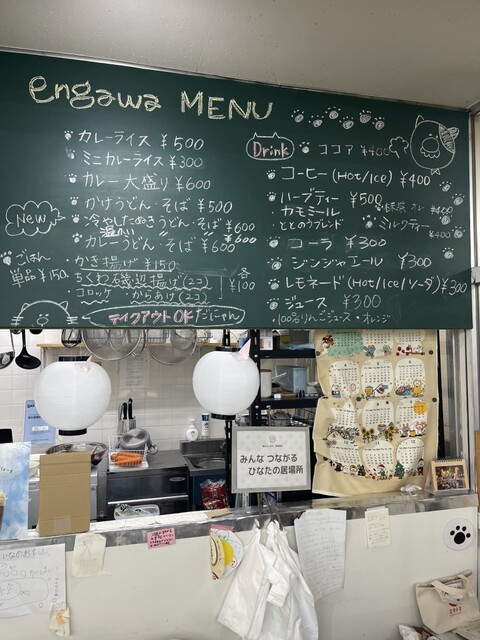 engawa MENU
カレーライス ¥500
ミニカレーライス ¥300
カレー大盛り ¥600
かけうどん・そば ¥500
New
冷やしたぬきうどん・そば ¥600
温かい ¥600
カレーうどん・そば ¥600
ごはん
単品 ¥150
かき揚げ ¥150
ちくわ磯辺揚げ(2コ)
コロッケ からあげ(2コ)
各¥100
テイクアウトOKだにゃん
Drink
ココア ¥400
コーヒー(Hot/Ice) ¥400
ハーブティー ¥500
カモミール
ととのうブレンド
抹茶オレ ¥400
ミルクティー ¥400
コーラ ¥300
ジンジャエール ¥300
レモネード(Hot/Ice/ソーダ) ¥300
ジュース ¥300
・100%りんごジュース・オレンジ
みんな つながる
ひなたの居場所